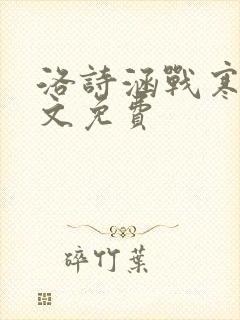 洛詩涵戰寒
文免費
碎竹葉